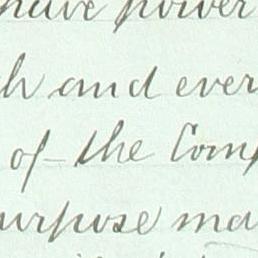 have power
h and ever
of the Comp
urpose ma